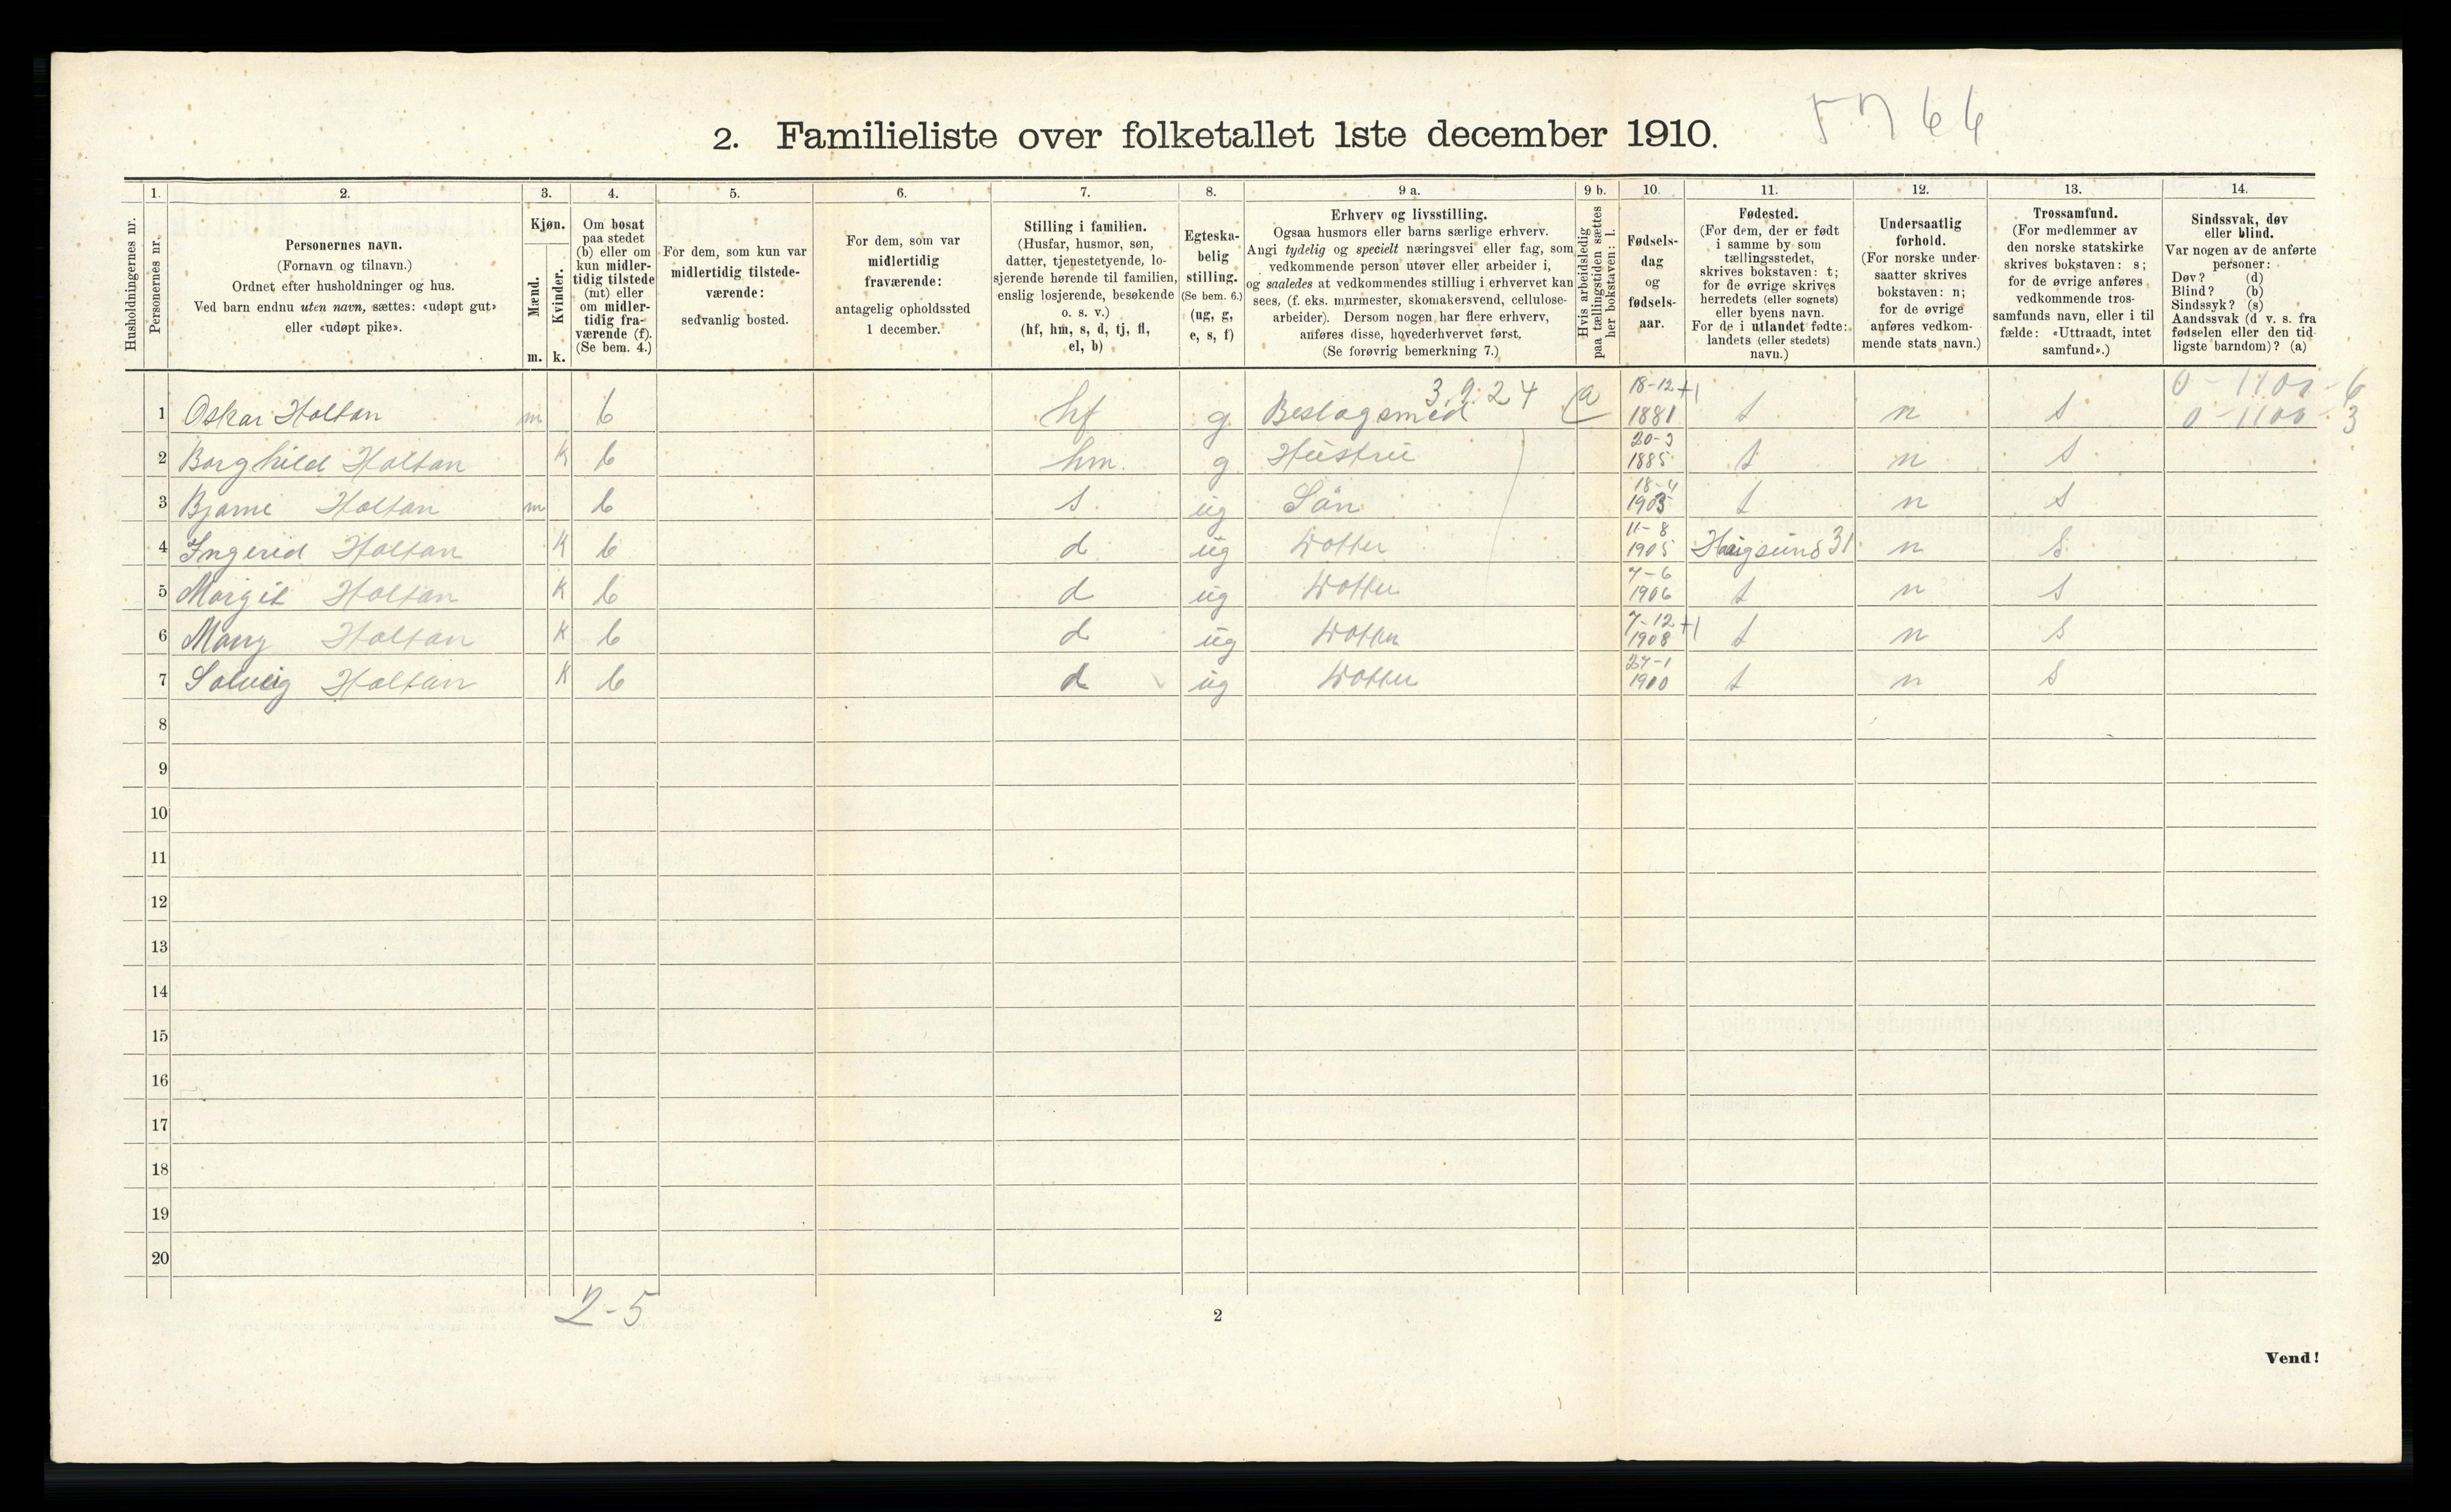 5764
2. Familieliste over folketallet 1ste december 1910.
Husholdningernes nr.
1.
Personernes nr.
2.
Personernes navn.
(Fornavn og tilnavn.)
Ordnet efter husholdninger og hus.
Ved barn endnu uten navn, sættes: «udøpt gut»
eller «udøpt pike».
3.
Kjøn.
Mænd.
Kvinder.
m. k.
4.
Om bosat
paa stedet
(b) eller om
kun midler-
tidig tilstede
(mt) eller
om midler-
tidig fra-
værende (f).
(Se bem. 4.)
5.
For dem, som kun var
midlertidig tilstede-
værende:
sedvanlig bosted.
6.
For dem, som var
midlertidig
fraværende:
antagelig opholdssted
1 december.
7.
Stilling i familien.
(Husfar, husmor, søn,
datter, tjenestetyende, lo-
sjerende hørende til familien,
enslig losjerende, besøkende
o. s. v.)
(hf, hm, s, d, tj, fl,
el, b)
8.
Egteska-
belig
stilling.
(Se bem. 6.)
(ug, g,
e, s, f)
9 a.
Erhverv og livsstilling.
Ogsaa husmors eller barns særlige erhverv.
Angi tydelig og specielt næringsvei eller fag, som
vedkommende person utøver eller arbeider i,
og saaledes at vedkommendes stilling i erhvervet kan
sees, (f. eks. murmester, skomakersvend, cellulose-
arbeider). Dersom nogen har flere erhverv,
anføres disse, hovederhvervet først.
(Se forøvrig bemerkning 7.)
9 b.
Hvis arbeidsledig
paa tællingstiden sættes
her bokstaven: l.
10.
Fødsels-
dag
og
fødsels-
aar.
11.
Fødested.
(For dem, der er født
i samme by som
tællingsstedet,
skrives bokstaven: t;
for de øvrige skrives
herredets (eller sognets)
eller byens navn.
For de i utlandet fødte:
landets (eller stedets)
navn.)
12.
Undersaatlig
forhold.
(For norske under-
saatter skrives
bokstaven: n;
for de øvrige
anføres vedkom-
mende stats navn.)
13.
Trossamfund.
(For medlemmer av
den norske statskirke
skrives bokstaven: s;
for de øvrige anføres
vedkommende tros-
samfunds navn, eller i til
fælde: «Uttraadt, intet
samfund».)
14.
Sindssvak, døv
eller blind.
Var nogen av de anførte
personer:
Døv? (d)
Blind? (b)
Sindssyk? (s)
Aandssvak (d v. s. fra
fødselen eller den tid-
ligste barndom)? (a)
3.9.24 a 18-12 +1 0-1100-6
1 Oskar Holtan m b hf g Beslagsmed 1881 t n s 0-1100-3
20-3
2 Borghild Holtan K b hm. g Hustru 1885 t n s
18-4
3 Bjarne Holtan m b s ug Sön 1903 t n s
11-8
4 Ingerid Holtan K b d ug Dotter 1905 Haugsund 31 n s
7-6
5 Margit Holtan K b d ug Dotter 1906 t n s
7-12 +1
6 Mary Holtan K b d ug Dotter 1908 t n s
27-1
7 Solveig Holtan K b d ug Dotter 1910 t n s
8
9
10
11
12
13
14
15
16
17
18
19
20
2-5
2
Vend!